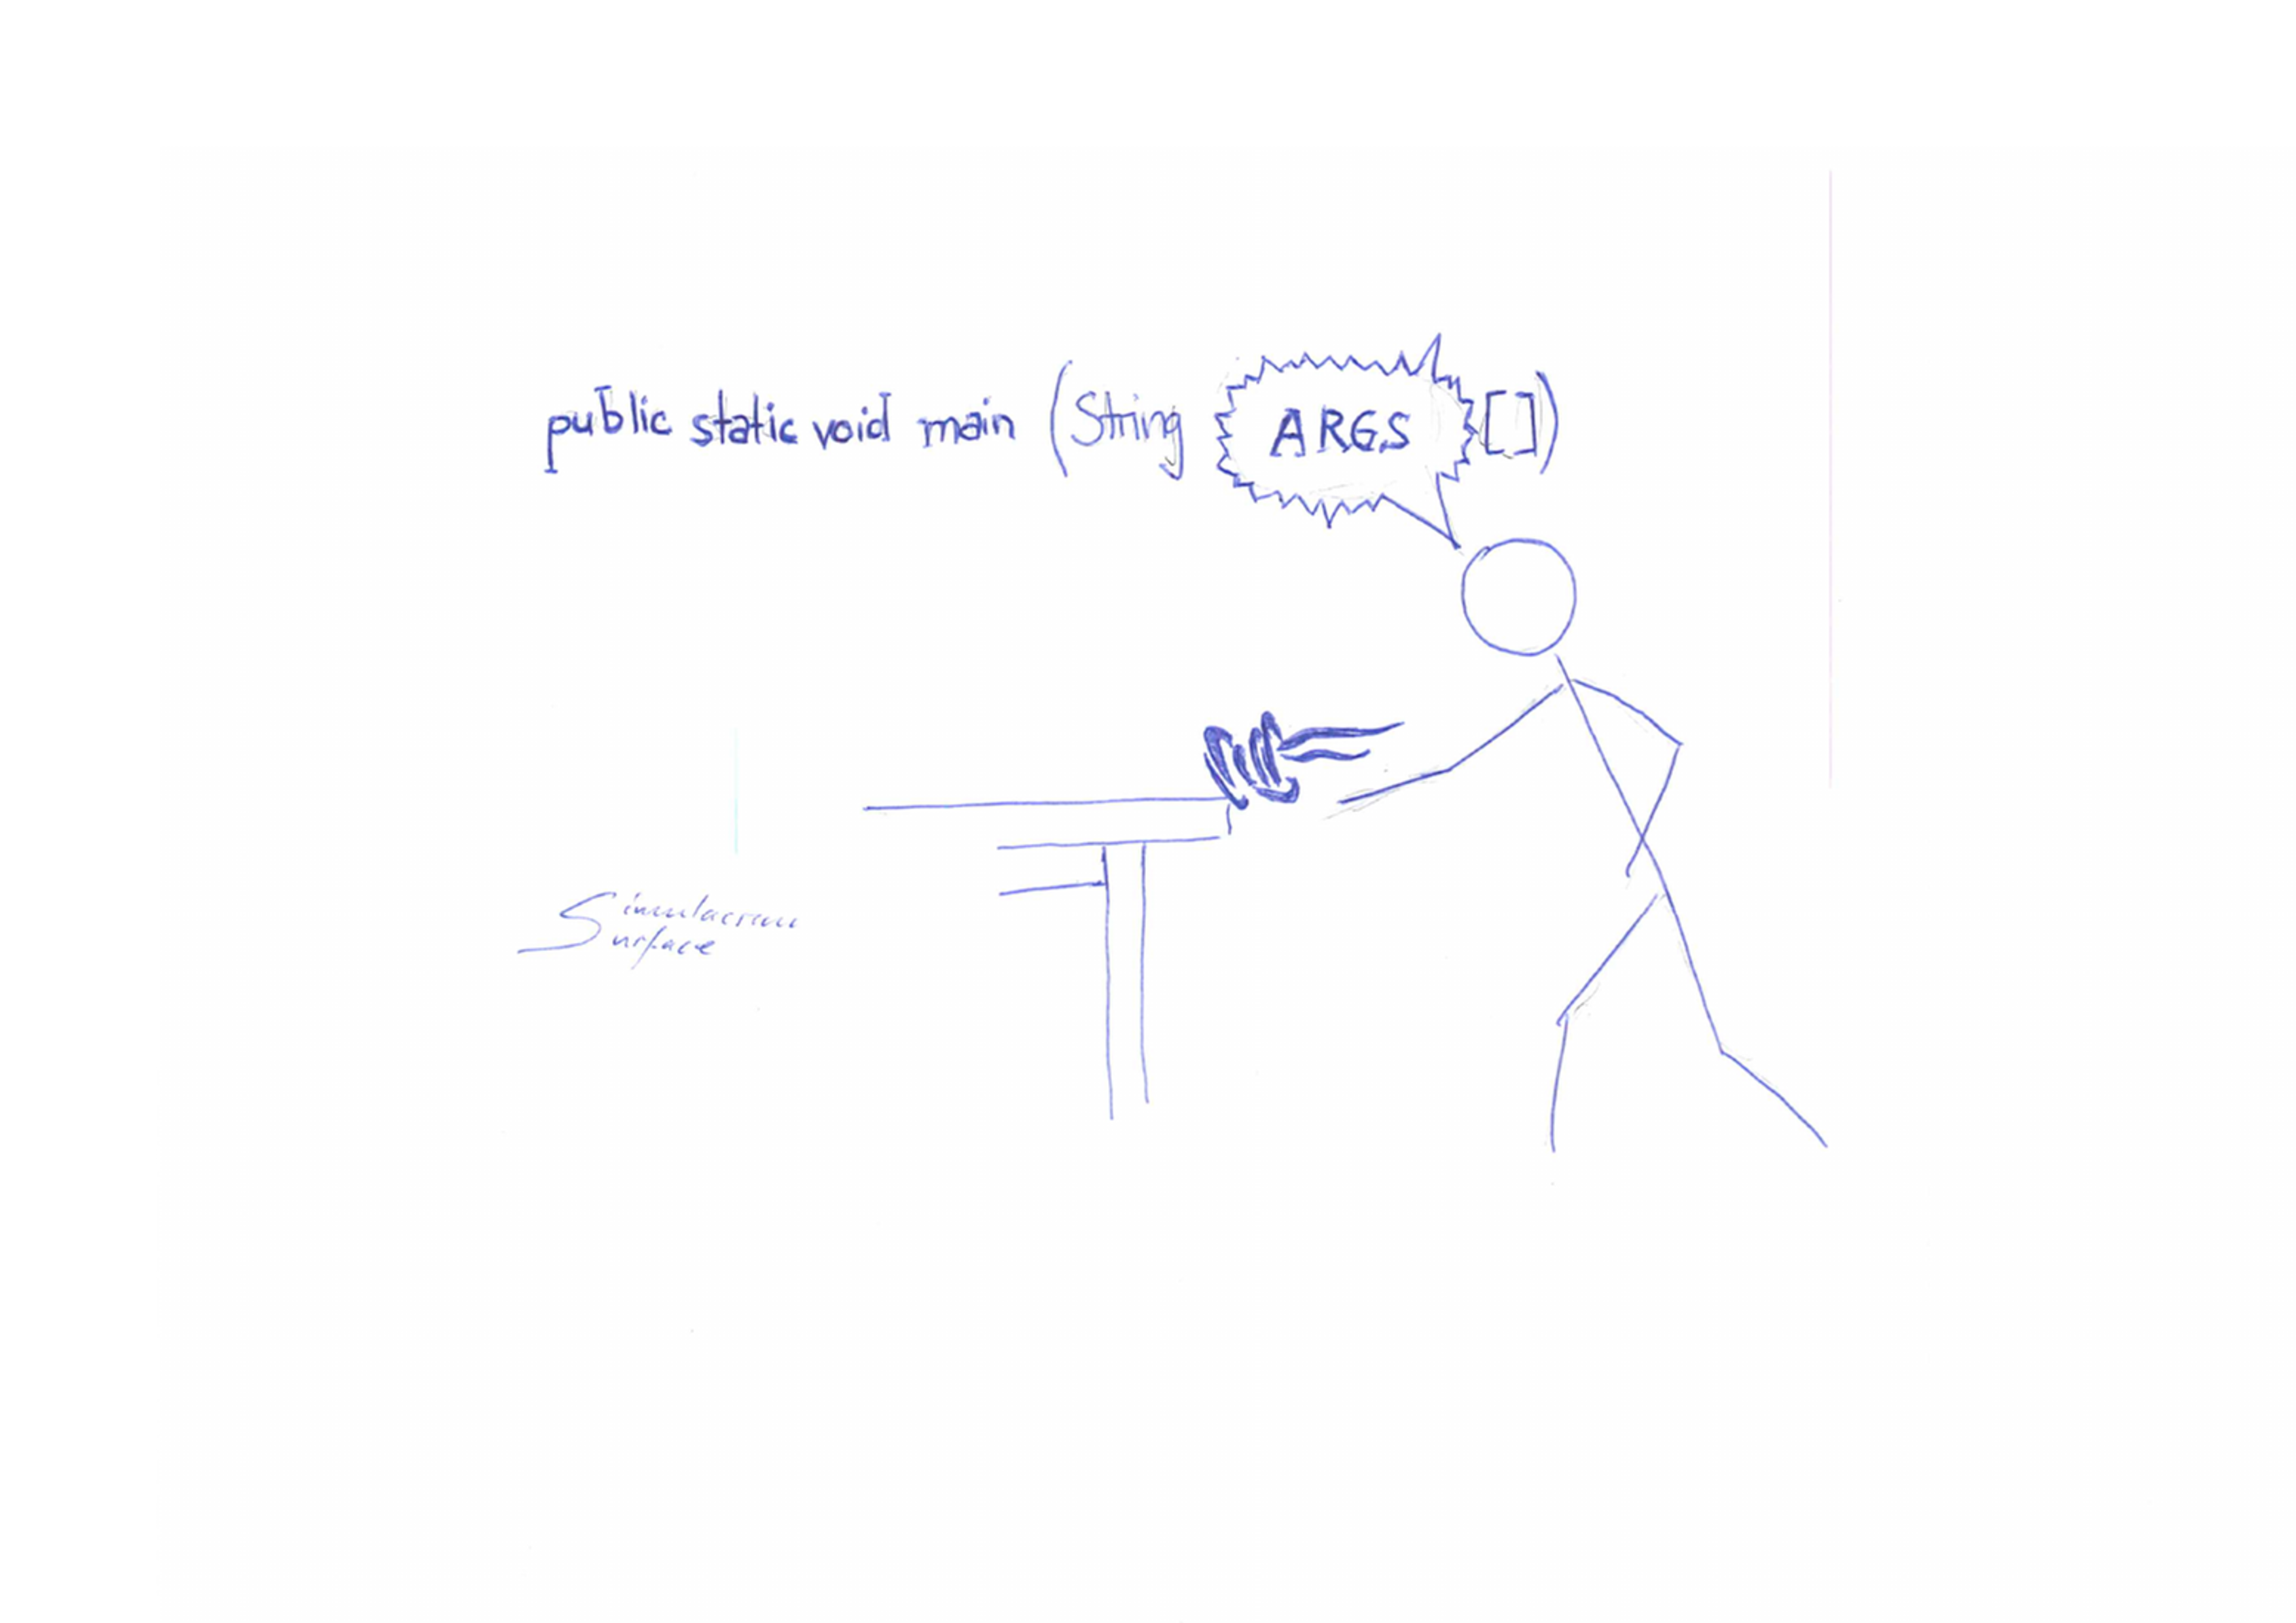 public static void main (String ARGS [])
Simulacrum
Surface